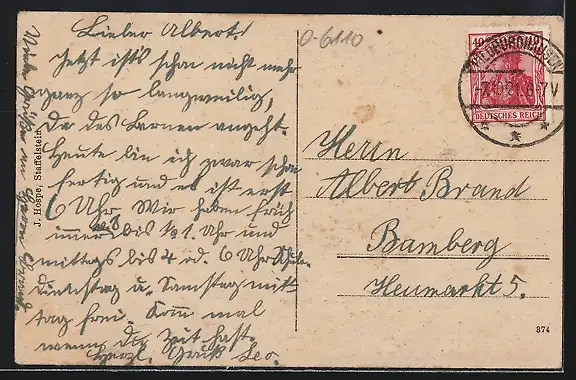 Lieber Albert!
Jetzt ists schon nicht mehr
ganz so langweilig,
Da das Lernen angeht.
Heute bin ich zwar schon
fertig und es ist erst
6 Uhr. Wir haben früh
immer v. 8 bis ½1 Uhr und
mittags bis 4 od. 6 Uhr Schule.
Dienstag u. Samstag mit
tag frei. Komm mal
wenn du Zeit hast.
Herzl. Gruß Leo.
Viele Grüße an
J. Hospe, Staffelstein
0-6110
40
HILDBURGHAUSEN
-7.10.21. 6-7 V
DEUTSCHES REICH
Herrn
Albert Brand
Bamberg
Heumarkt 5.
374